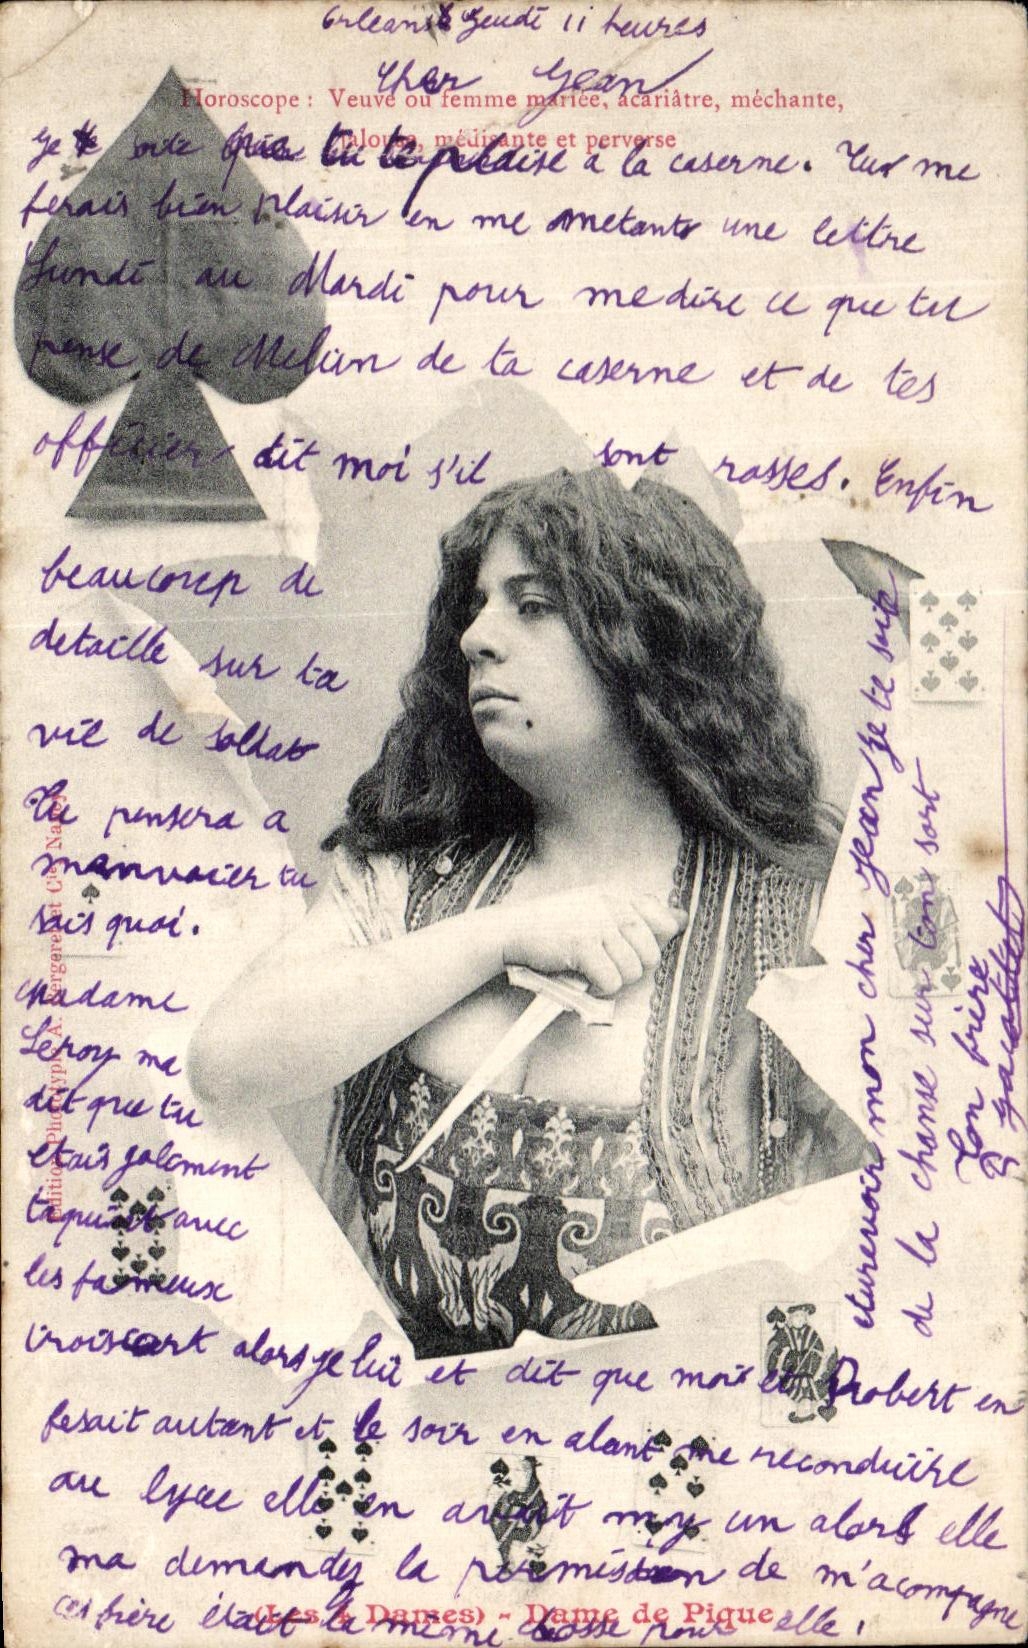 Orleans Jeudi 11 heures
Cher Jean
Horoscope : Veuve ou femme mariée, acariâtre, méchante,
jalouse, médisante et perverse
Je que tu te a la caserne. me
ferais bien plaisir en me metant une lettre
Lundi au Mardi pour me dire ce que tu
pense de Melun de ta caserne et de tes
officier dit moi s'il sont rosses. Enfin
beaucoup de
detaille sur ta
vie de soldat
Tu pensera a
manvoier tu
sais quoi.
Madame
Leroy ma
dit que tu
etais galement
avec
les fameux
alors je lui et dit que moi et Robert en
fesait autant et le soir en alant me reconduire
au lycee elle en avait un alors elle
ma demandez la permission de m'acompagne
était la même chosse pour elle.
eturevoir mon cher Jean je te suite
de la chanse sur ton sort
Ton frère
Edition Phototypie A. Bergeret et Cie Nancy
(Les 4 Dames) - Dame de Pique